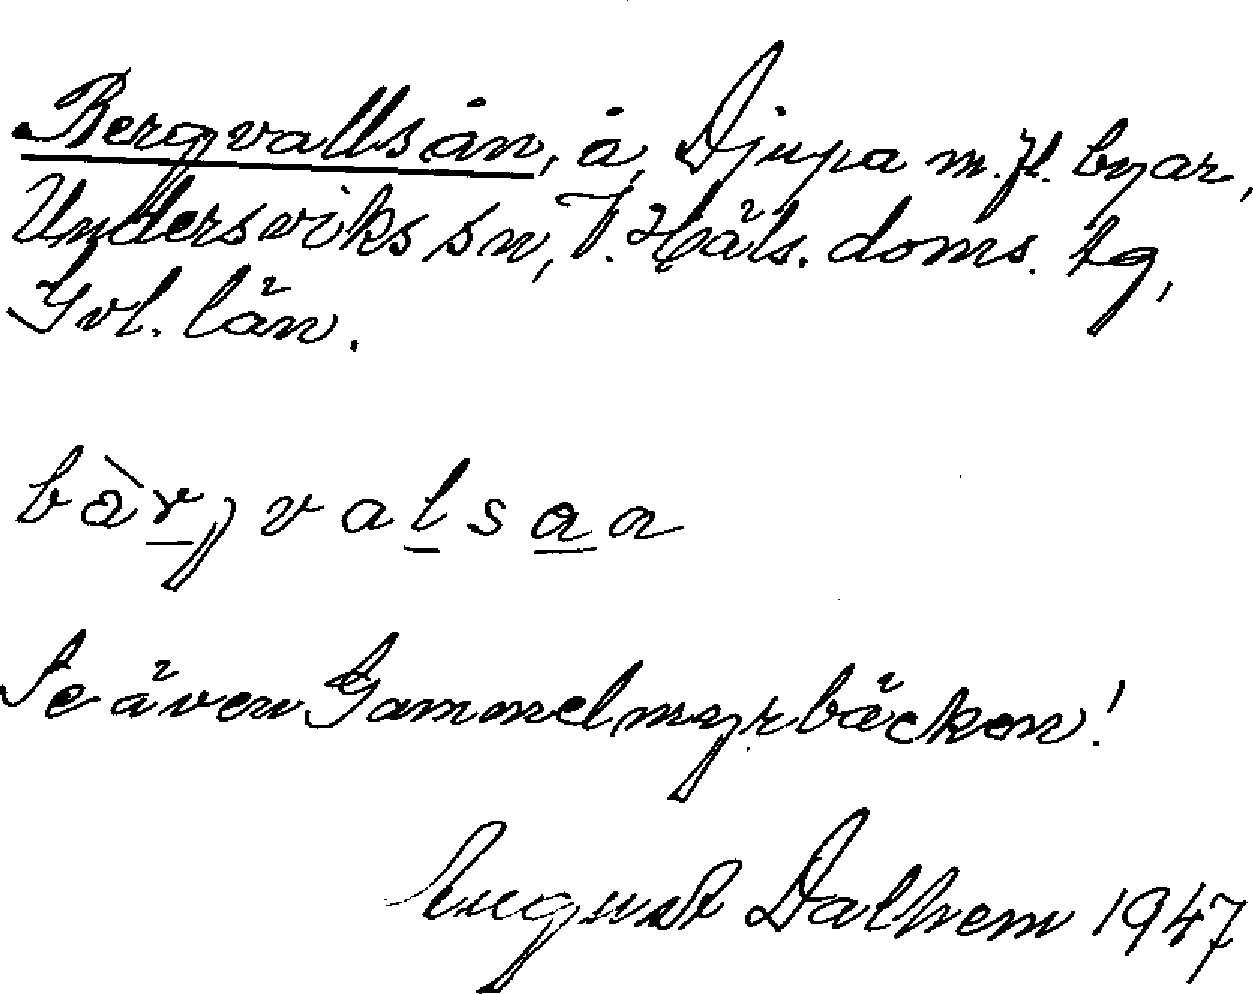 Bergvallsån, å, Djupa m.fl. byar,
Undersviks sn, V. Häls. doms. tg,
Gvl. län.
bàrjvalsan
Se även Gammelmyrbäcken!
August Dalhem 1947